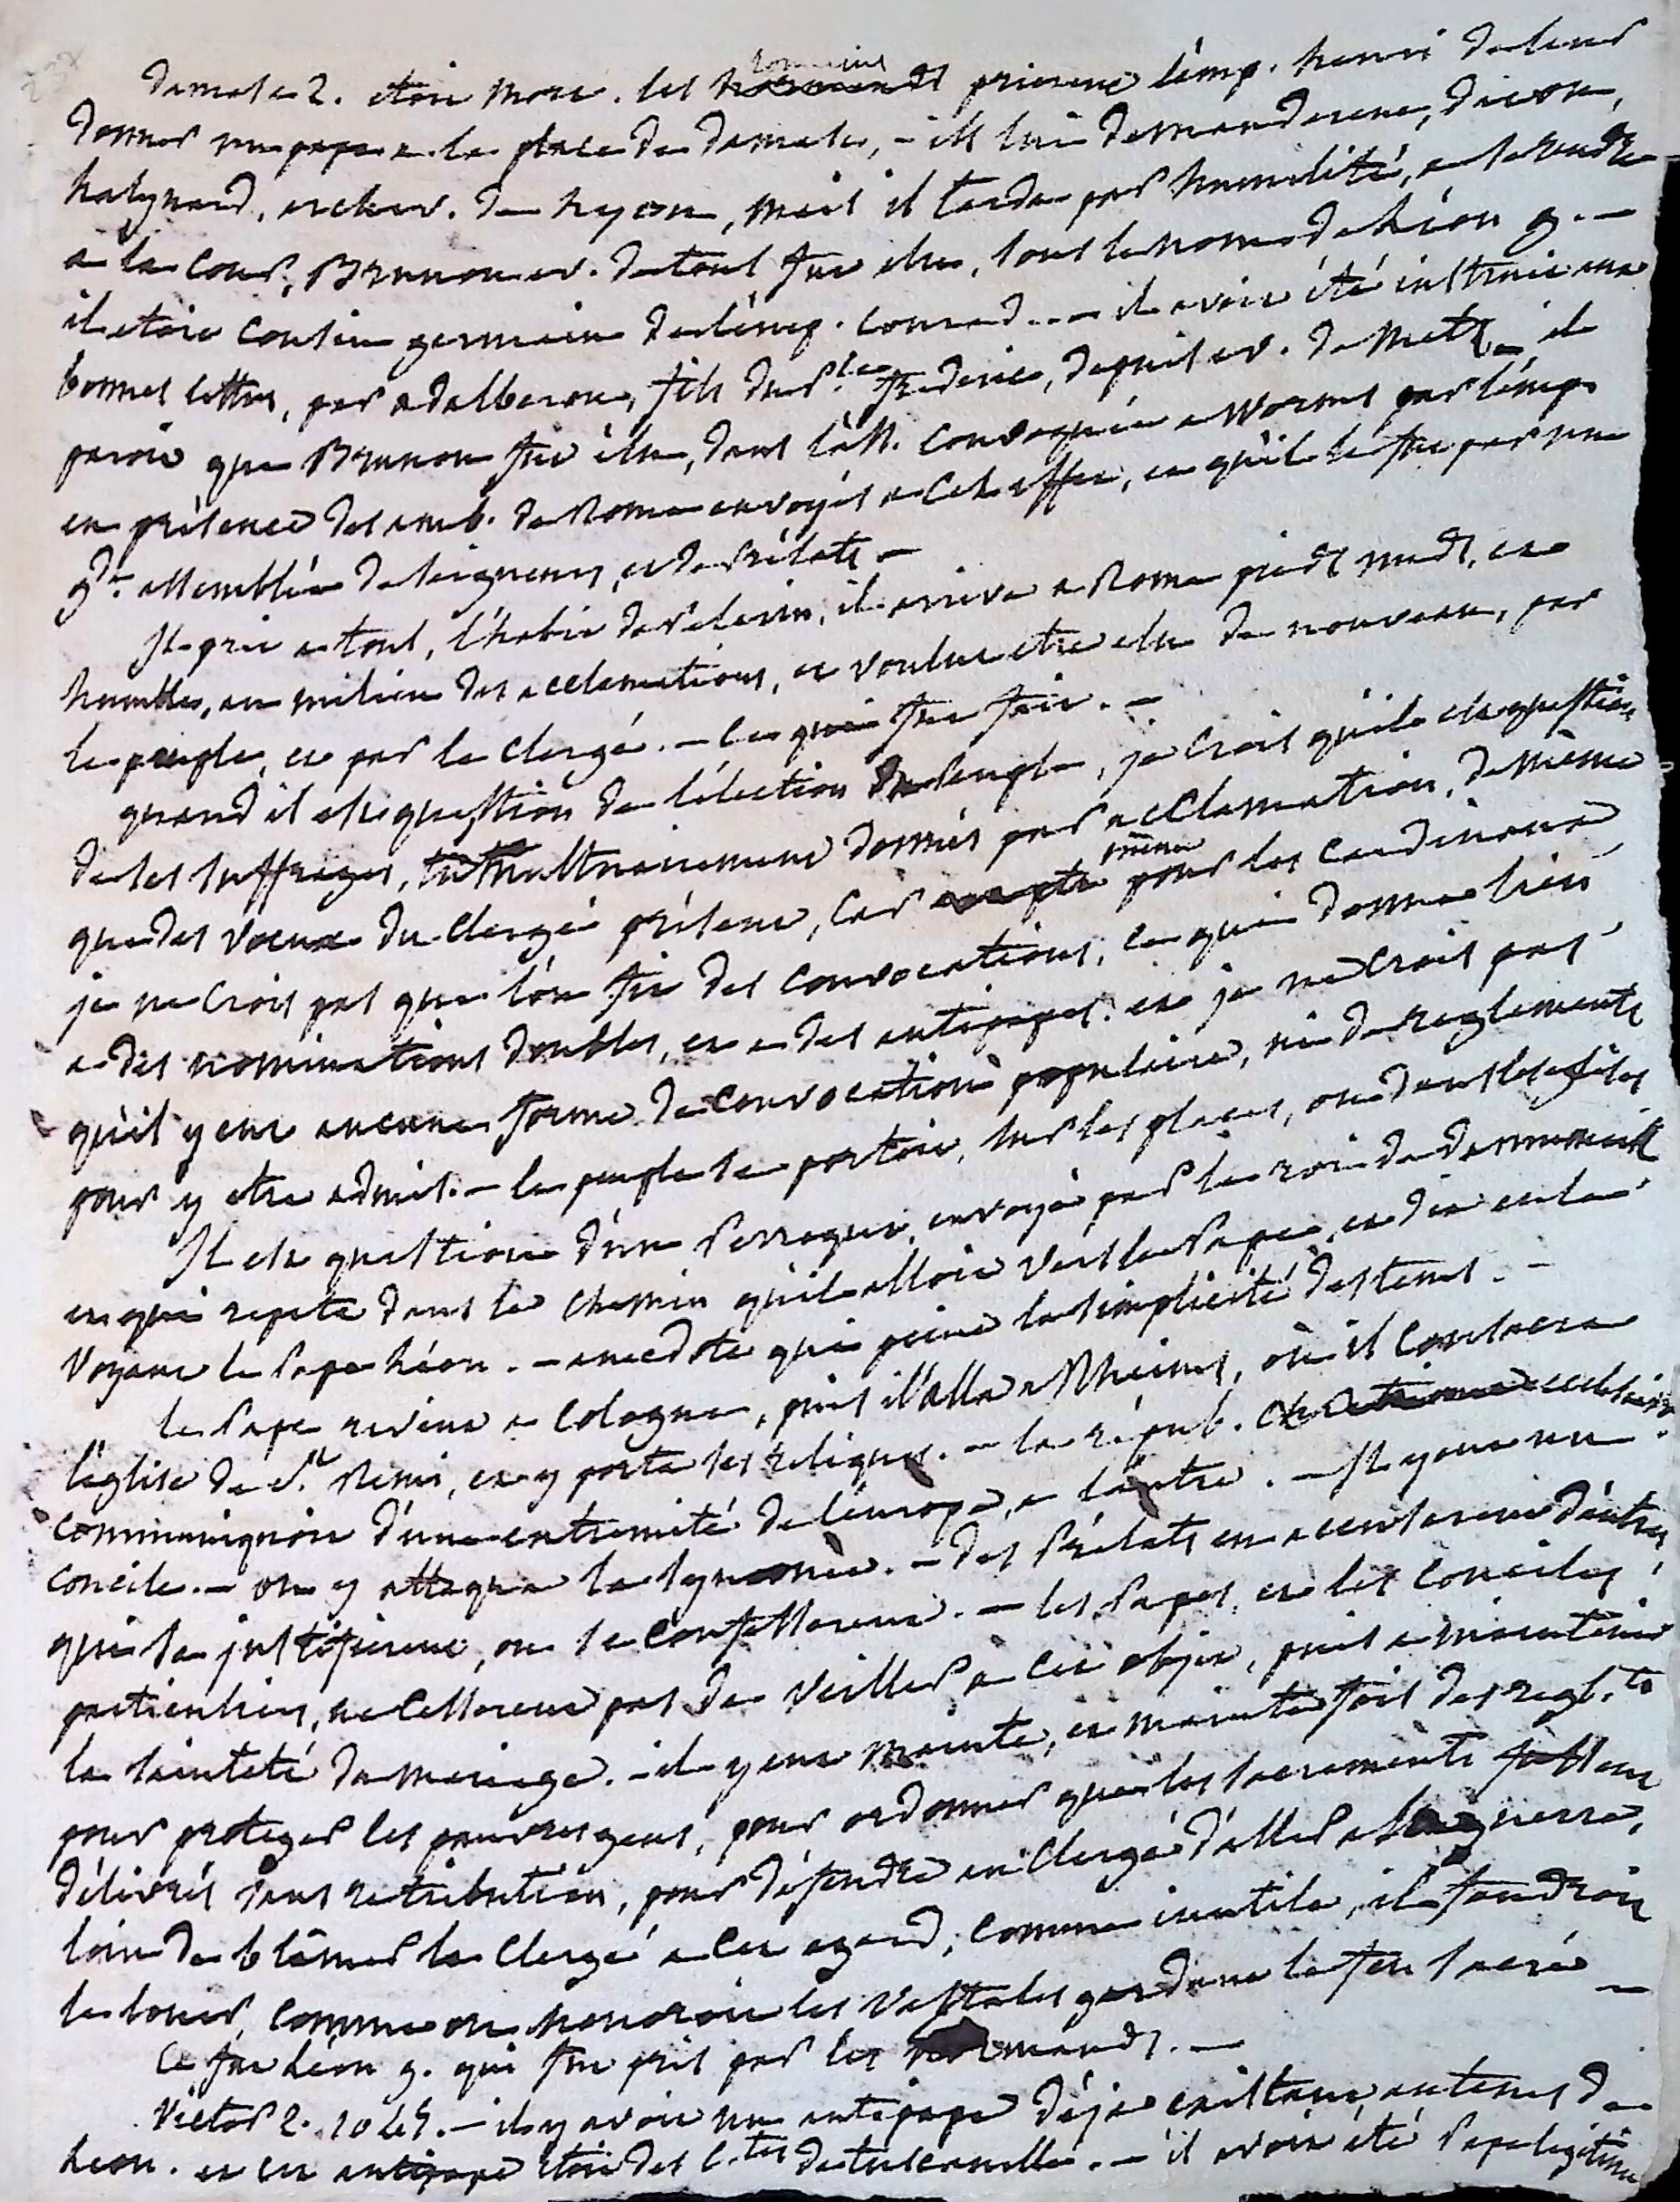 romains
damase 2. etoit mort. les normands prierent l'emp. henri de leur
donner un pape a la place de damase, - ils lui demanderent, dit on,
halynard, archev. de lyon, mais il tarda par humilité, a se rendre
a la cour, Brunon ev. de toul fut elu, sous le nom de Léon 9. -
il etoit cousin germain de l'emp. conrad. - il avoit été instruit aux
bonnes lettres, par adalberon, fils du p.ce frederic, depuis ev. de Metz - il
paroit que Brunon fut élu, dans l'ass. convoquée a Worms par l'emp.
en présence des amb. de Rome envoyés a cet effet, et qu'il le fut par une
g.de assemblée de seigneurs, et de Prélats -
Il prit a toul, l'habit de Pelerin, il arriva a Rome pieds nuds, et
humble, au milieu des acclamations, et voulut etre elu de nouveau, par
le peuple, et par le clergé. - ce qui fut fait. -
quand il est question de l'election du Peuple, je crois qu'il est question
de ses suffrages, tumultuairement donnés par acclamation, de même
que des voeux du clergé présent, car même pour les cardinaux
je ne crois pas que l'on fit des convocations, ce qui donna lieu
a des nominations doubles, et a des antipapes. et je ne crois pas
qu'il y eut aucune forme de convocation populaire, ni de reglements
pour y etre admis. - le peuple se portoit, sur les places, ou dans les eglises
Il est question d'un Perroquet, envoyé par le roi de dannemark
et qui repeta dans le chemin qu'il alloit vers le Pape, et dit en le
voyant le Pape Léon. - anecdote qui peint la simplicité des tems. -
le Pape revint a Cologne, puis il alla a Rheims, où il consacra
l'église de S.t Remi, et y porta les reliques. - la répub. chretienne ecclesias.
communiquoit d'une extremité de l'europe, a l'autre. - Il y eut un
concile. - on y attaqua la symonie. - des Prélats en accuserent d'autres,
qui se justifierent, ou se confesserent. - les Papes, et les conciles
particuliers, ne cesserent pas de veiller a cet objet, puis a maintenir
la sainteté du mariage. - il y eut mainte, et mainte fois des regl.ts
pour proteger les pauvres gens, pour ordonner que les sacrements fussent
délivrés sans retribution, pour défendre au clergé d'aller a la guerre,
loin de blâmer le clergé a cet egard, comme inutile, il faudroit
le louer, comme on honoroit les Vestales gardant le feu sacré -
Ce fut Léon 9. qui fut pris par les normands. -
Victor 2. 1045. - il y avoit un antipape déja existant au tems de
Leon. et cet antipape étoit des C.tes de tuscanelle. - il avoit été Pape legitime